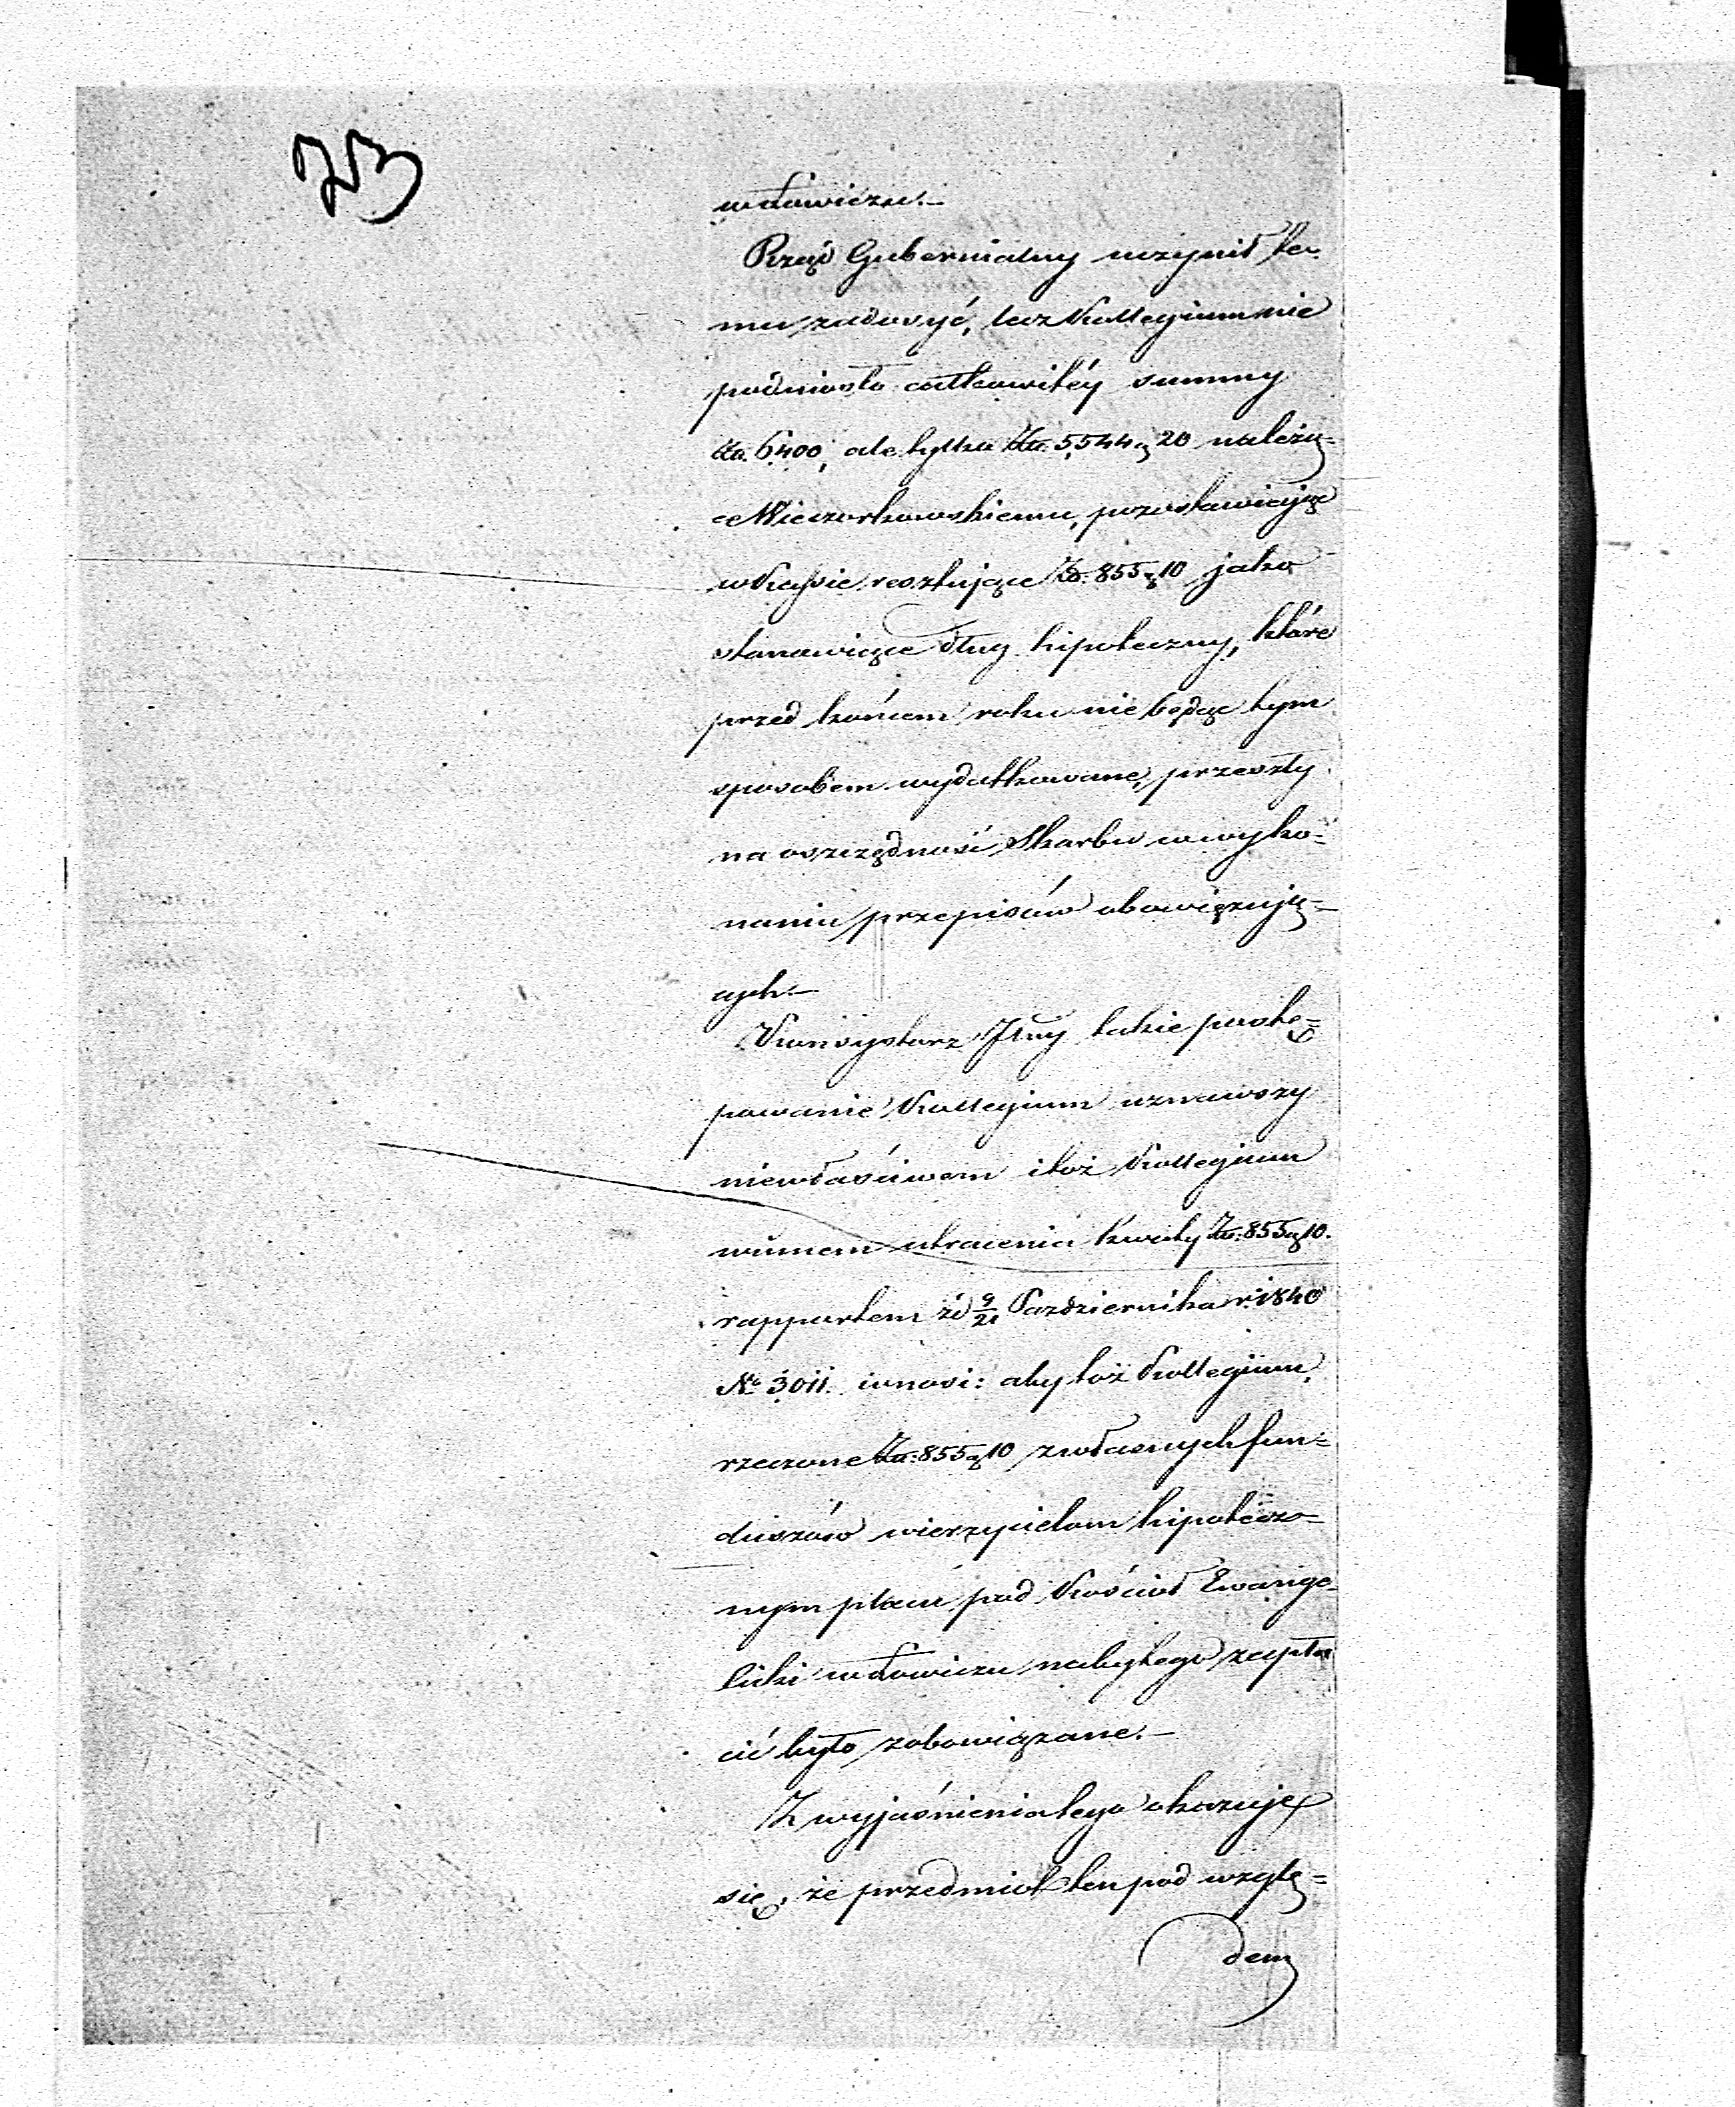 73
w Łowiczu.—
Rząd Gubernialny uczynił te-
mu zadosyć, lecz Kollegium nie
podniosło całkowitéy summy
Złp. 6400, ale tylko Złp. 5,544 g 20 należą=
ce Wieczorkowskiemu, pozostawiając
w Kassie resztujące Złp. 855 g 10 jako
stanowiące dług hipoteczny, które
przed końcem roku nie będąc tym
sposobem wydatkowane, przeszły
na oszczędność Skarbu w wyko=
naniu przepisów obowiązują=
cych.—
Konsystorz JLny takie postę=
powanie Kollegium uznawszy
niewłaściwem i toż Kollegium
winnem utracenia kwoty Złp. 855 g 10.
rapportem zd 9/21 Października r. 1840
No 3011. wnosi: aby toż Kollegium,
rzeczone Złp. 855 g 10 z własnych fun=
duszów wierzycielom hipotecz=
nym placu pod Kościoł Ewange-
licki w Łowiczu nabytego zapła
cić było zobowiązane.—
Z wyjaśnienia tego okazuje
się, że przedmiot ten pod wzglę=
dem